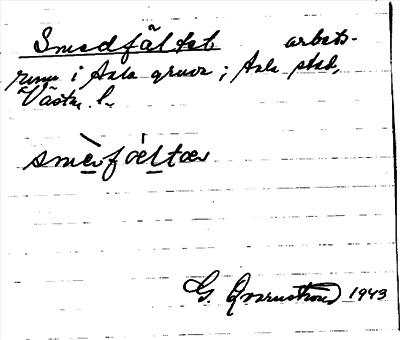 Smedfältet arbets-
rum i Sala gruva ; Sala stad,
Västm. l.
smèfæltəv
G. Qvarnström 1943